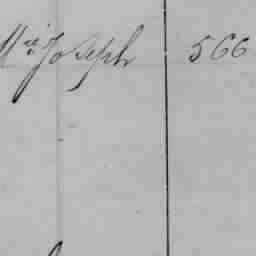 Mr Joseph 566